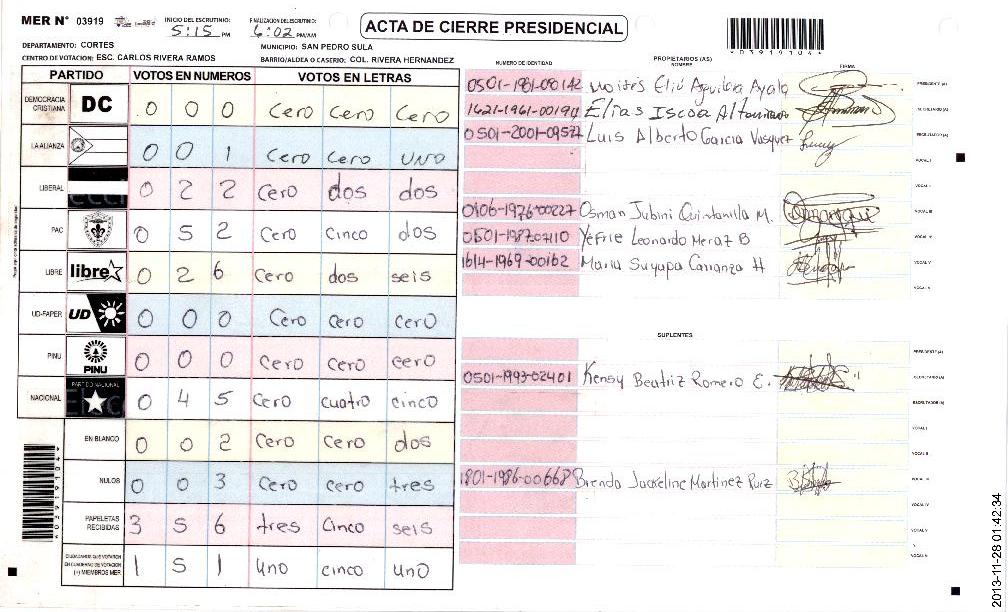 MER N° 03919
INICIO DEL ESCRUTINIO: 5:15 PM
FINALIZACION DEL ESCRUTINIO: 6:02 PM/AM
ACTA DE CIERRE PRESIDENCIAL
DEPARTAMENTO: CORTES
MUNICIPIO: SAN PEDRO SULA
CENTRO DE VOTACION: ESC. CARLOS RIVERA RAMOS
BARRIO/ALDEA O CASERIO: COL. RIVERA HERNANDEZ
PARTIDO VOTOS EN NUMEROS VOTOS EN LETRAS
DEMOCRACIA CRISTIANA DC 0 0 0 Cero Cero Cero
LA ALIANZA 0 0 1 Cero Cero UNO
LIBERAL 0 2 2 Cero dos dos
PAC 0 5 2 Cero Cinco dos
LIBRE libre 0 2 6 Cero dos seis
UD-FAPER UD 0 0 0 Cero Cero Cero
PINU PINU 0 0 0 Cero Cero Cero
NACIONAL PARTIDO NACIONAL 0 4 5 Cero cuatro cinco
EN BLANCO 0 0 2 Cero Cero dos
NULOS 0 0 3 Cero Cero tres
PAPELETAS RECIBIDAS 3 5 6 tres Cinco seis
CIUDADANOS QUE VOTARON EN CUADERNO DE VOTACION (+) MIEMBROS MER 1 5 1 Uno cinco Uno
NUMERO DE IDENTIDAD
PROPIETARIOS (AS)
NOMBRE
FIRMA
Moisés Eliú Aguilera Ayala PRESIDENTE (A)
Elias Iscoa
0501-2001-09577 Luis Alberto Garcia Vasquez
VOCAL I
VOCAL II
0106-1976-00227 Osman Jubini Quintanilla M. VOCAL III
Yefrie Leonardo Meraz B VOCAL IV
1614-1969-00162 Maria Suyapa Carranza H VOCAL V
SUPLENTES
PRESIDENTE (A)
0501-1993-02401 Kensy Beatriz Romero E. SECRETARIO (A)
ESCRUTADOR (A)
VOCAL I
VOCAL II
1801-1986-00668 Brenda Jackeline Martinez Ruiz VOCAL III
VOCAL IV
VOCAL V
*03919104*
2013-11-28 01:42:34